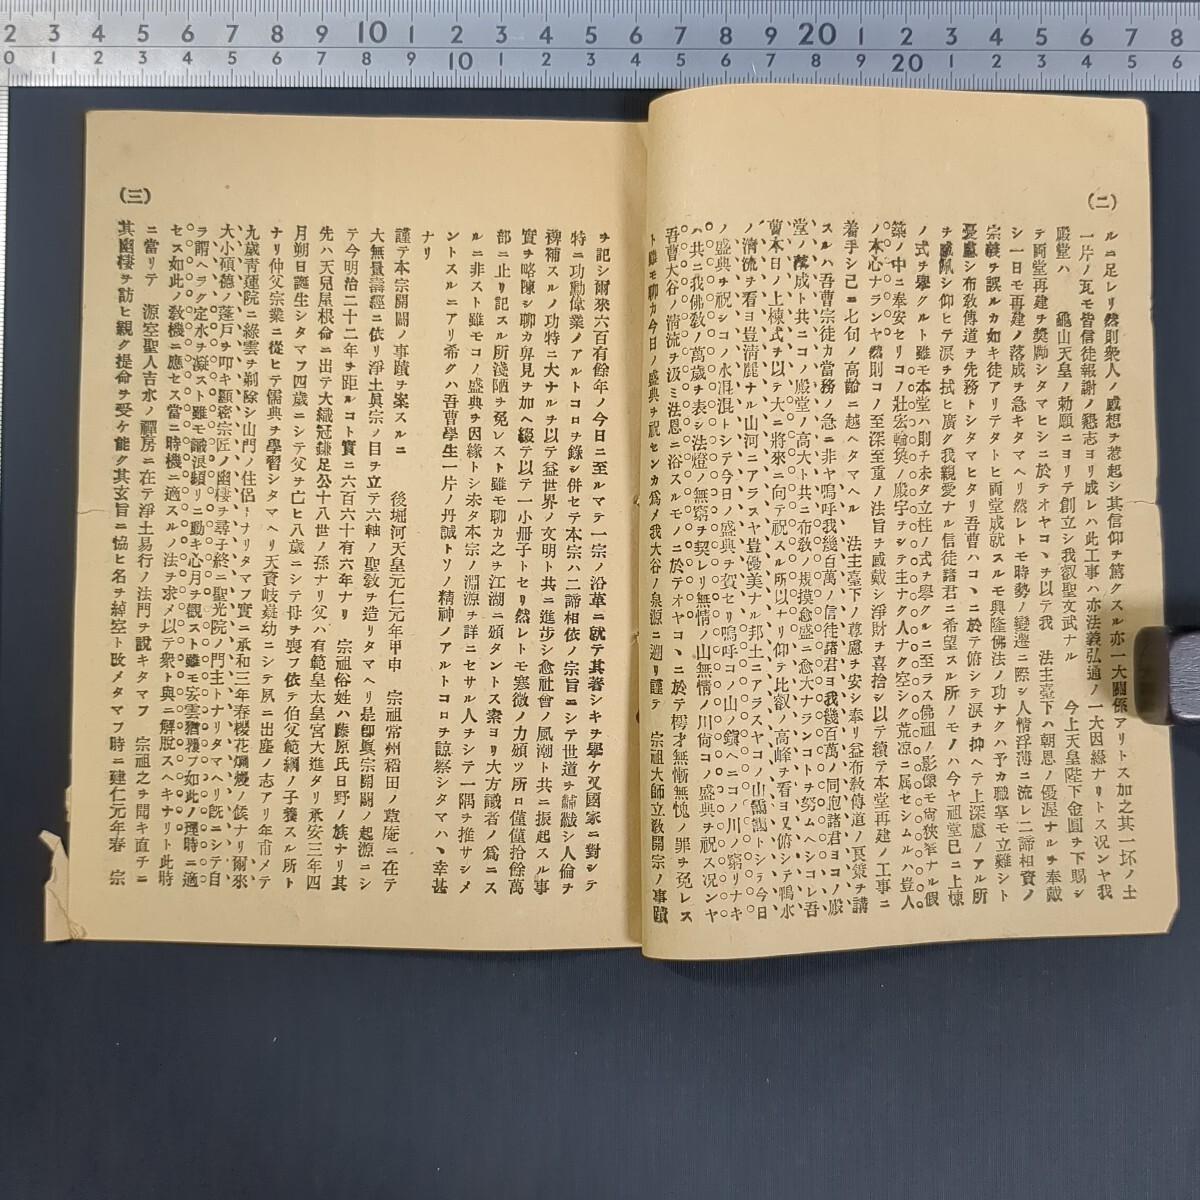 (二)
ルニ足レリ然則衆人ノ感想ヲ惹起シ其信仰ヲ篤クスル亦一大關係アリトス加之其一坏ノ土
一片ノ瓦モ皆信徒報謝ノ懇志ヨリ成レハ此工事ハ亦法義弘通ノ一大因緣ナリトス况ンヤ我
殿堂ハ 龜山天皇ノ勅願ニヨリテ創立シ我叡聖文武ナル 今上天皇陛下金圓ヲ下賜シ
テ両堂再建ヲ奬勵シタマヒシニ於テオヤコヽヲ以テ我 法主臺下ハ朝恩ノ優渥ナルヲ奉戴
シ一日モ再建ノ落成ヲ急キタマヘリ然レトモ時勢ノ變遷ニ際シ人情浮薄ニ流レ二諦相資ノ
宗義ヲ誤ルカ如キ徒アリテタトヒ両堂成就スルモ興隆佛法ノ功ナクハ予カ職掌モ立難シト
憂慮シ布敎傳道ヲ先務トシタマヒタリ吾曹ハコヽニ於テ俯シテ淚ヲ抑ヘテ上深慮ノアル所
ヲ感佩シ仰ヒテ淚ヲ拭ヒ廣ク我親愛ナル信徒諸君ニ希望スル所ノモノハ今ヤ祖堂已ニ上棟
ノ式ヲ擧クルト雖モ本堂ハ則チ未タ立柱ノ式ヲ擧クルニ至ラス佛祖ノ影像モ甯狹窄ナル假
築ノ中ニ奉安セリコノ壯宏輪奐ノ殿宇ヲシテ主ナク人ナク空シク荒凉ニ属セシムルハ豈人
ノ本心ナランヤ然則コノ至深至重ノ法旨ヲ感戴シ淨財ヲ喜捨シ以テ續テ本堂再建ノ工事ニ
着手シ己ニ七旬ノ高齡ニ越ヘタマヘル 法主臺下ノ尊慮ヲ安シ奉リ益布敎傳道ノ良策ヲ講
スルハ吾曹宗徒カ當務ノ急ニ非ヤ嗚呼我幾百萬ノ信徒諸君ヨ我幾百萬ノ同胞諸君ヨコノ殿
堂ノ落成ト共ニコノ殿堂ノ高大ト共ニ布敎ノ規摸愈盛ニ愈大ナランコトヲ努ムヘシコレ吾
曹本日ノ上棟式ヲ以テ大ニ將來ニ向テ祝スル所以ナリ仰テ比叡ノ高峰ヲ看ヨ又俯シテ鴨水
ノ淸流ヲ看ヨ豈淸麗ナル山河ニアラスヤ豈優美ナル邦土ニアラスヤコノ山靄靄トシテ今日
ノ盛典ヲ祝シコノ水混混トシテ今日ノ盛典ヲ賀セリ嗚呼コノ山ノ鎭ヘニコノ川ノ窮リナキ
ハ共ニ我佛敎ノ萬歲ヲ表シ法燈ノ無窮ヲ契レリ無情ノ山無情ノ川尙コノ盛典ヲ祝ス况ンヤ
吾曹大谷ノ淸流ヲ汲ミ法恩ニ浴スルモノニ於テオヤコヽニ於テ樗才無慚無愧ノ罪ヲ免レス
ト雖モ聊カ今日ノ盛典ヲ祝センカ爲メ我大谷ノ泉源ニ遡リ謹テ 宗祖大師立敎開宗ノ事蹟
(三)
ヲ記シ爾來六百有餘年ノ今日ニ至ルマテ一宗ノ沿革ニ就テ其著シキヲ擧ケ又國家ニ對シテ
特ニ功勳偉業ノアルトコロヲ錄シ併セテ本宗ハ二諦相依ノ宗旨ニシテ世道ヲ黼黻シ人倫ヲ
裨補スルノ功特ニ大ナルヲ以テ益世界ノ文明ト共ニ進步シ愈社會ノ風潮ト共ニ振起スル事
實ヲ略陳シ聊カ鄙見ヲ加ヘ綴テ以テ一小册子トセリ然レトモ寒微ノ力頒ツ所ロ僅僅拾餘萬
部ニ止リ記スル所淺陋ヲ免レスト雖モ聊カ之ヲ江湖ニ頒タントス素ヨリ大方識者ノ爲ニス
ルニ非スト雖モコノ盛典ヲ因緣トシ未タ本宗ノ淵源ヲ詳ニセサル人ヲシテ一隅ヲ推サシメ
ントスルニアリ希クハ吾曹學生一片ノ丹誠トソノ精神ノアルトコロヲ諒察シタマハヽ幸甚
ナリ
謹テ本宗開闢ノ事蹟ヲ案スルニ 後堀河天皇元仁元年甲申 宗祖常州稻田ノ草庵ニ在テ
大無量壽經ニ依リ淨土眞宗ノ目ヲ立テ六軸ノ聖敎ヲ造リタマヘリ是卽眞宗開闢ノ起源ニシ
テ今明治二十二年ヲ距ルコト實ニ六百六十有六年ナリ 宗祖俗姓ハ藤原氏日野ノ族ナリ其
先ハ天兒屋根命ニ出テ大織冠鎌足公十八世ノ孫ナリ父ハ有範皇太皇宮大進タリ承安三年四
月朔日誕生シタマフ四歲ニシテ父ヲ亡ヒ八歲ニシテ母ヲ喪フ依テ伯父範綱ノ子養スル所ト
ナリ仲父宗業ニ從ヒテ儒典ヲ學習シタマヘリ天資岐嶷幼ニシテ夙ニ出塵ノ志アリ年甫メテ
九歲靑蓮院ニ綠雲ヲ剃除シ山門ノ住侶トナリタマフ實ニ承和三年春櫻花爛熳ノ候ナリ爾來
大小碩德ノ蓬戶ヲ叩キ顯密宗匠ノ幽棲ヲ尋子終ニ聖光院ノ門主トナリタマヘリ旣ニシテ自
ラ謂ヘラク定水ヲ凝スト雖モ識浪頻リニ動キ心月ヲ觀スト雖モ妄雲猶覆フ如此ノ運時ニ適
セス如此ノ敎機ニ應セス當ニ時機ニ適スルノ法ヲ求メ以テ衆ト與ニ解脫スヘキナリト此時
ニ當リテ 源空聖人吉水ノ禪房ニ在テ淨土易行ノ法門ヲ說キタマフ 宗祖之ヲ聞キ直チニ
其幽棲ヲ訪ヒ親ク提命ヲ受ケ能ク其玄旨ニ協ヒ名ヲ綽空ト改メタマフ時ニ建仁元年春 宗